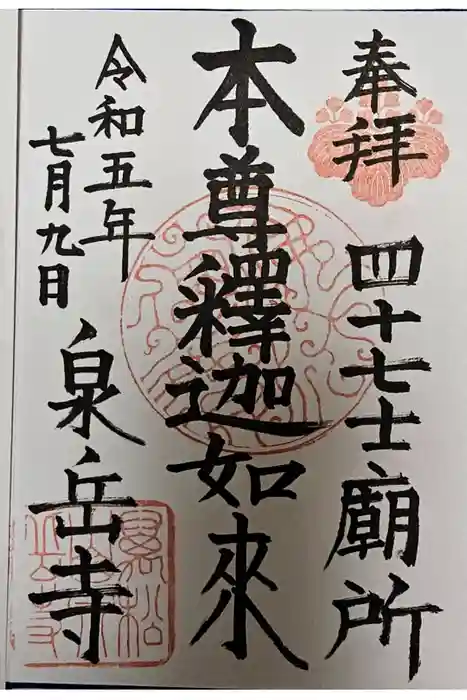 奉拜
四十七士廟所
本尊釋迦如來
令和五年
七月九日
泉岳寺